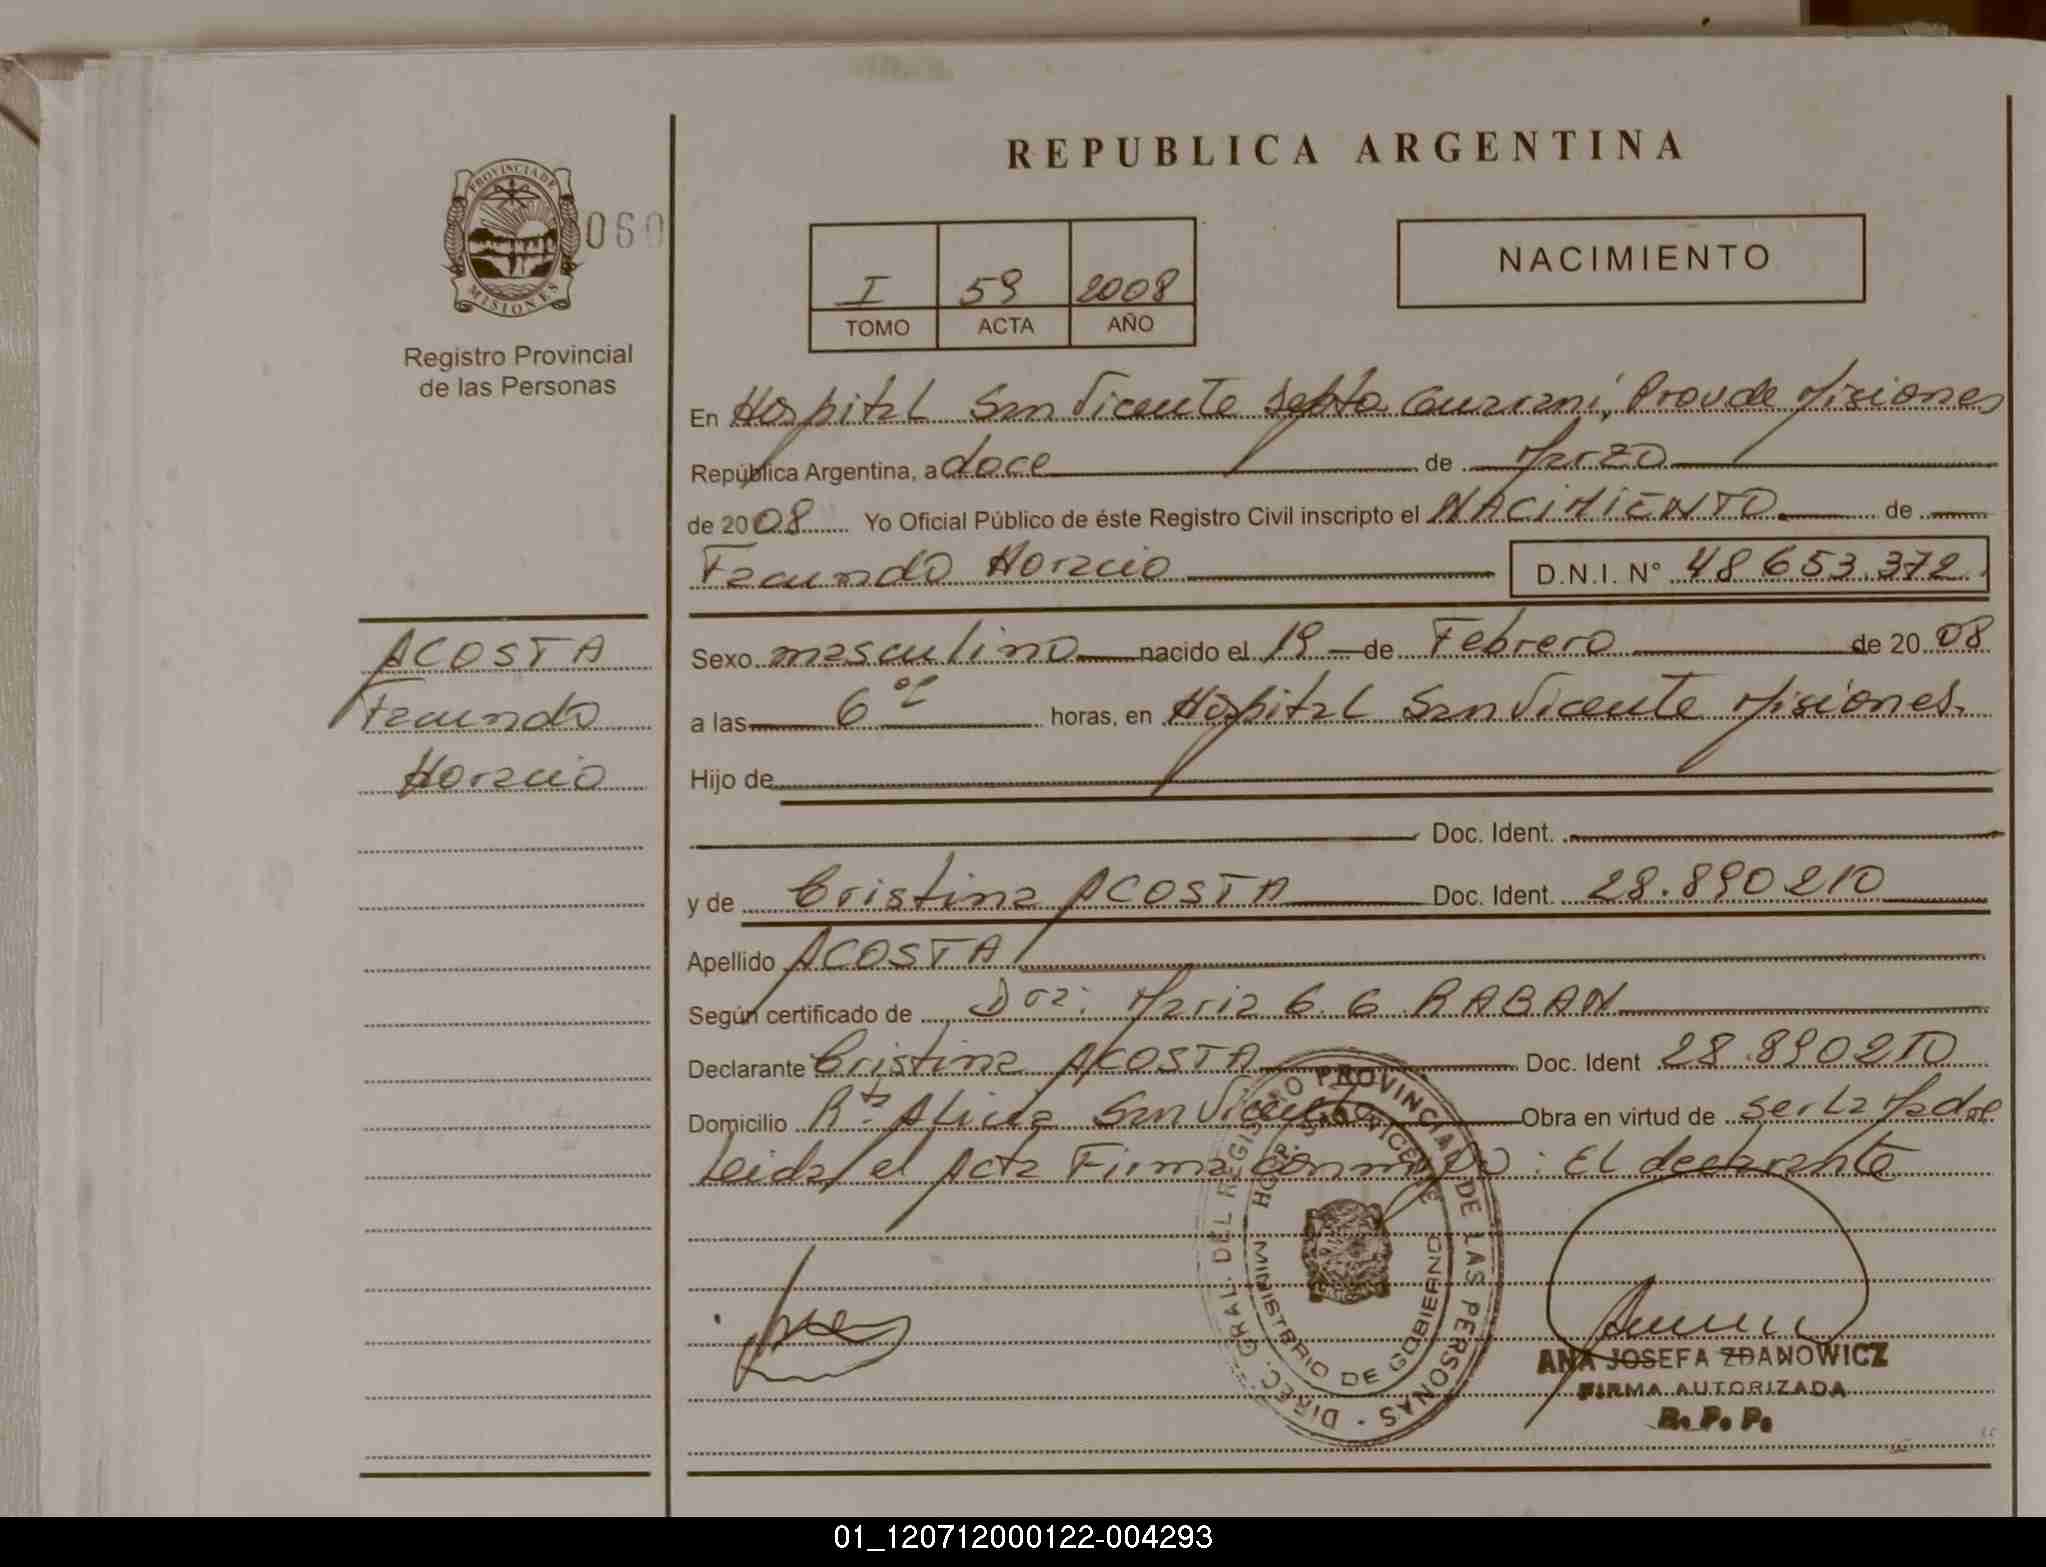 REPUBLICA ARGENTINA
PROVINCIA DE MISIONES
060
Registro Provincial
de las Personas
I 59 2008
TOMO ACTA AÑO
NACIMIENTO
En Hospital San Vicente Depto Guarani, Prov de Misiones
República Argentina, a doce de Marzo
de 2008 Yo Oficial Público de éste Registro Civil inscripto el NACIMIENTO de
Facundo Horacio D.N.I. N° 48653.372
ACOSTA
Facundo
Horacio
Sexo masculino nacido el 19 de Febrero de 20 08
a las 6 horas, en Hospital San Vicente Misiones.
Hijo de
Doc. Ident.
y de Cristina ACOSTA Doc. Ident. 28.890210
Apellido ACOSTA
Según certificado de Dra: Maria G. G. RABAN
Declarante Cristina ACOSTA Doc. Ident 28.890210
Domicilio Rta Alicia San Vicente Obra en virtud de ser La Madre
Leida el Acta Firma conmigo: El declarante
DIREC. GRAL. DEL REGISTRO PROVINCIAL DE LAS PERSONAS
HOSP. SAN VICENTE
MINISTERIO DE GOBIERNO
ANA JOSEFA ZDANOWICZ
FIRMA AUTORIZADA
R. P. P.
01_120712000122-004293